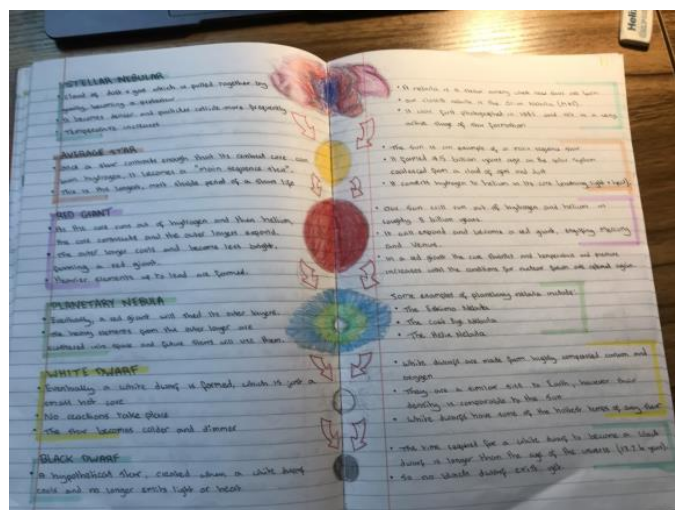 STELLAR NEBULAR
• Cloud of dust + gas which is pulled together by
gravity, becoming a protostar
• It becomes denser and particles collide more frequently
• Temperature increases
AVERAGE STAR
• Once a star contracts enough that its central core can
burn hydrogen, it becomes a "main sequence star".
• This is the longest, most stable period of a stars life
RED GIANT
• As the core runs out of hydrogen and then helium,
the core contracts and the outer layers expand
• The outer layer cools and become less bright,
forming a red giant.
• Heavier elements up to lead are formed.
PLANETARY NEBULA
• Eventually, a red giant will shed its outer layers.
• The heavy elements from the outer layer are
scattered into space and future stars will use them.
WHITE DWARF
• Eventually a white dwarf is formed, which is just a
small hot core
• No reactions take place
• The star becomes colder and dimmer
BLACK DWARF
• A hypothetical star, created when a white dwarf
cools and no longer emits light or heat
• A nebula is a where new stars are born
• Our closest nebula is the Orion Nebula
• It was first photographed in and is a very
active stage of star formation
• The Sun is an example of a main sequence star
• It formed 4.5 billion years ago as the solar system
coalesced from a cloud of gas and
• It converts hydrogen to helium in its core (producing light + heat).
• Our Sun will run out of hydrogen and helium in
roughly 5 billion years.
• It will expand and become a red giant, engulfing Mercury
and Venus.
• In a red giant the core and temperature and pressure
increases until the conditions for nuclear fusion are again.
Some examples of planetary nebula include:
• The Eskimo Nebula
• The Cat's Eye Nebula
• The Helix Nebula
• White dwarfs are made from highly compressed carbon and
oxygen
• They are a similar size to Earth, however their
density is comparable to the Sun
• White dwarfs have some of the hottest temps of any star
• The time required for a white dwarf to become a black
dwarf is longer than the age of the universe
• So no black dwarf exists yet.
Heli